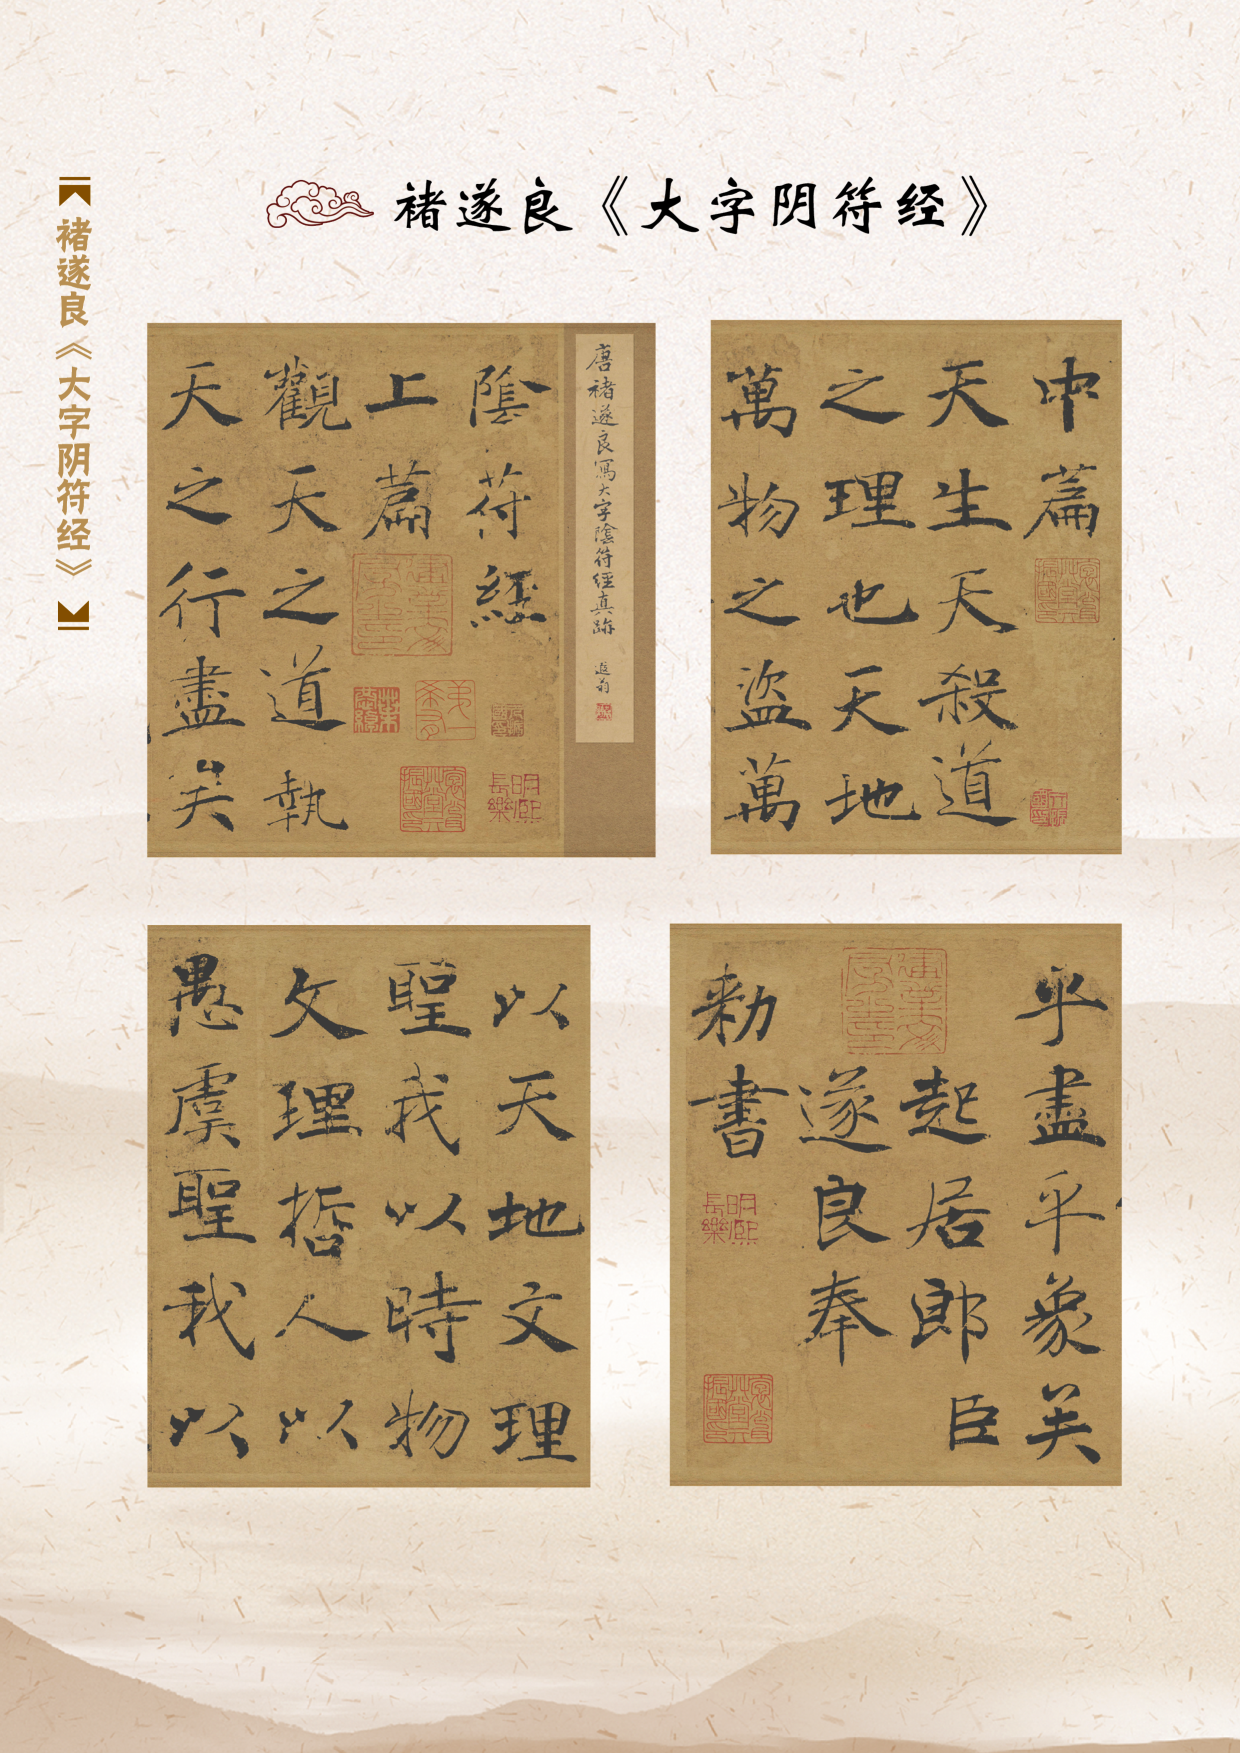 褚遂良《大字阴符经》
褚遂良《大字阴符经》
唐褚遂良寫大字陰符經真跡
陰符經
上篇
觀天之道執
天之行盡矣
中篇
天生天殺道
之理也天地
萬物之盜萬
以天地文理
聖我以時物
文理哲人以
愚虞聖我以
乎盡乎象矣
起居郎臣
遂良奉
勑書